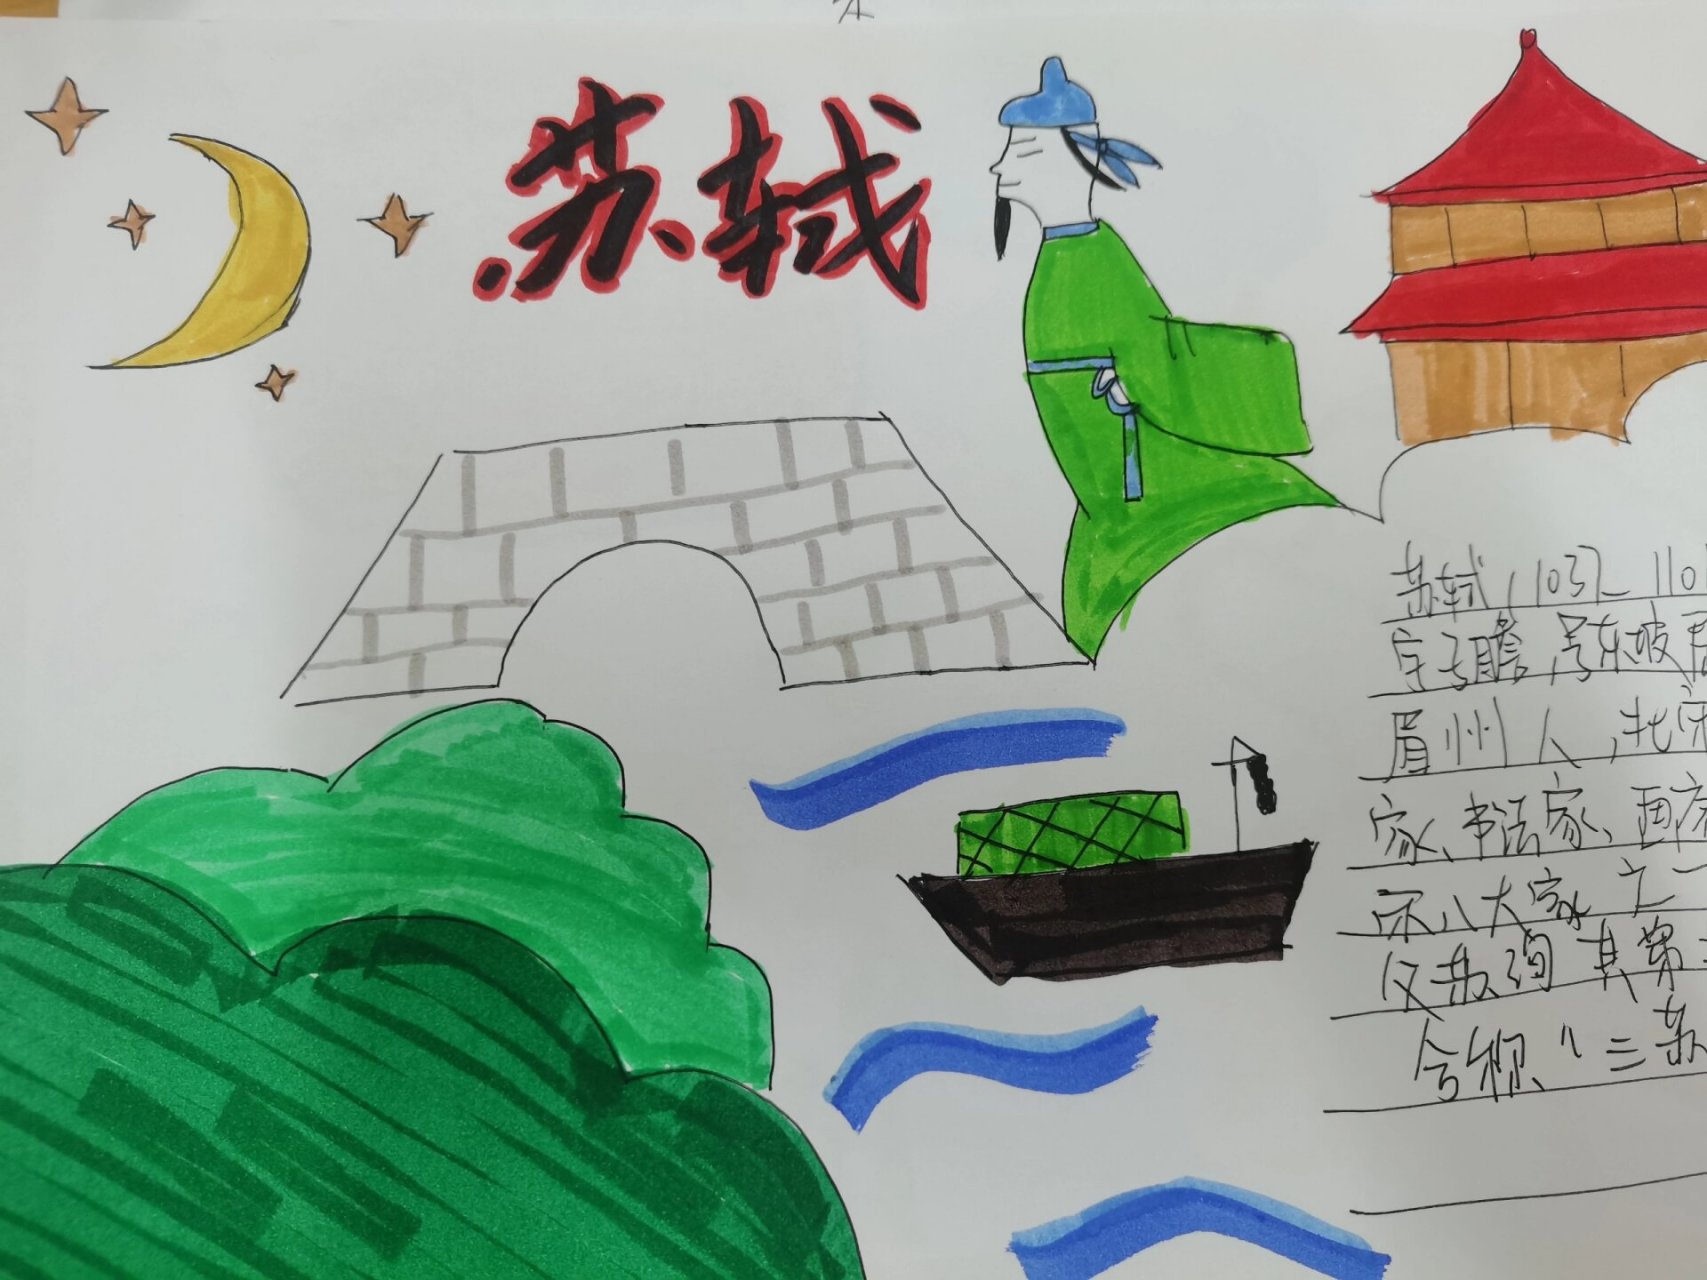 苏轼
苏轼,1037-110
字子瞻,号东坡居
眉州人,北宋
家、书法家、画家
宋八大家之一
父苏洵其弟
合称“三苏